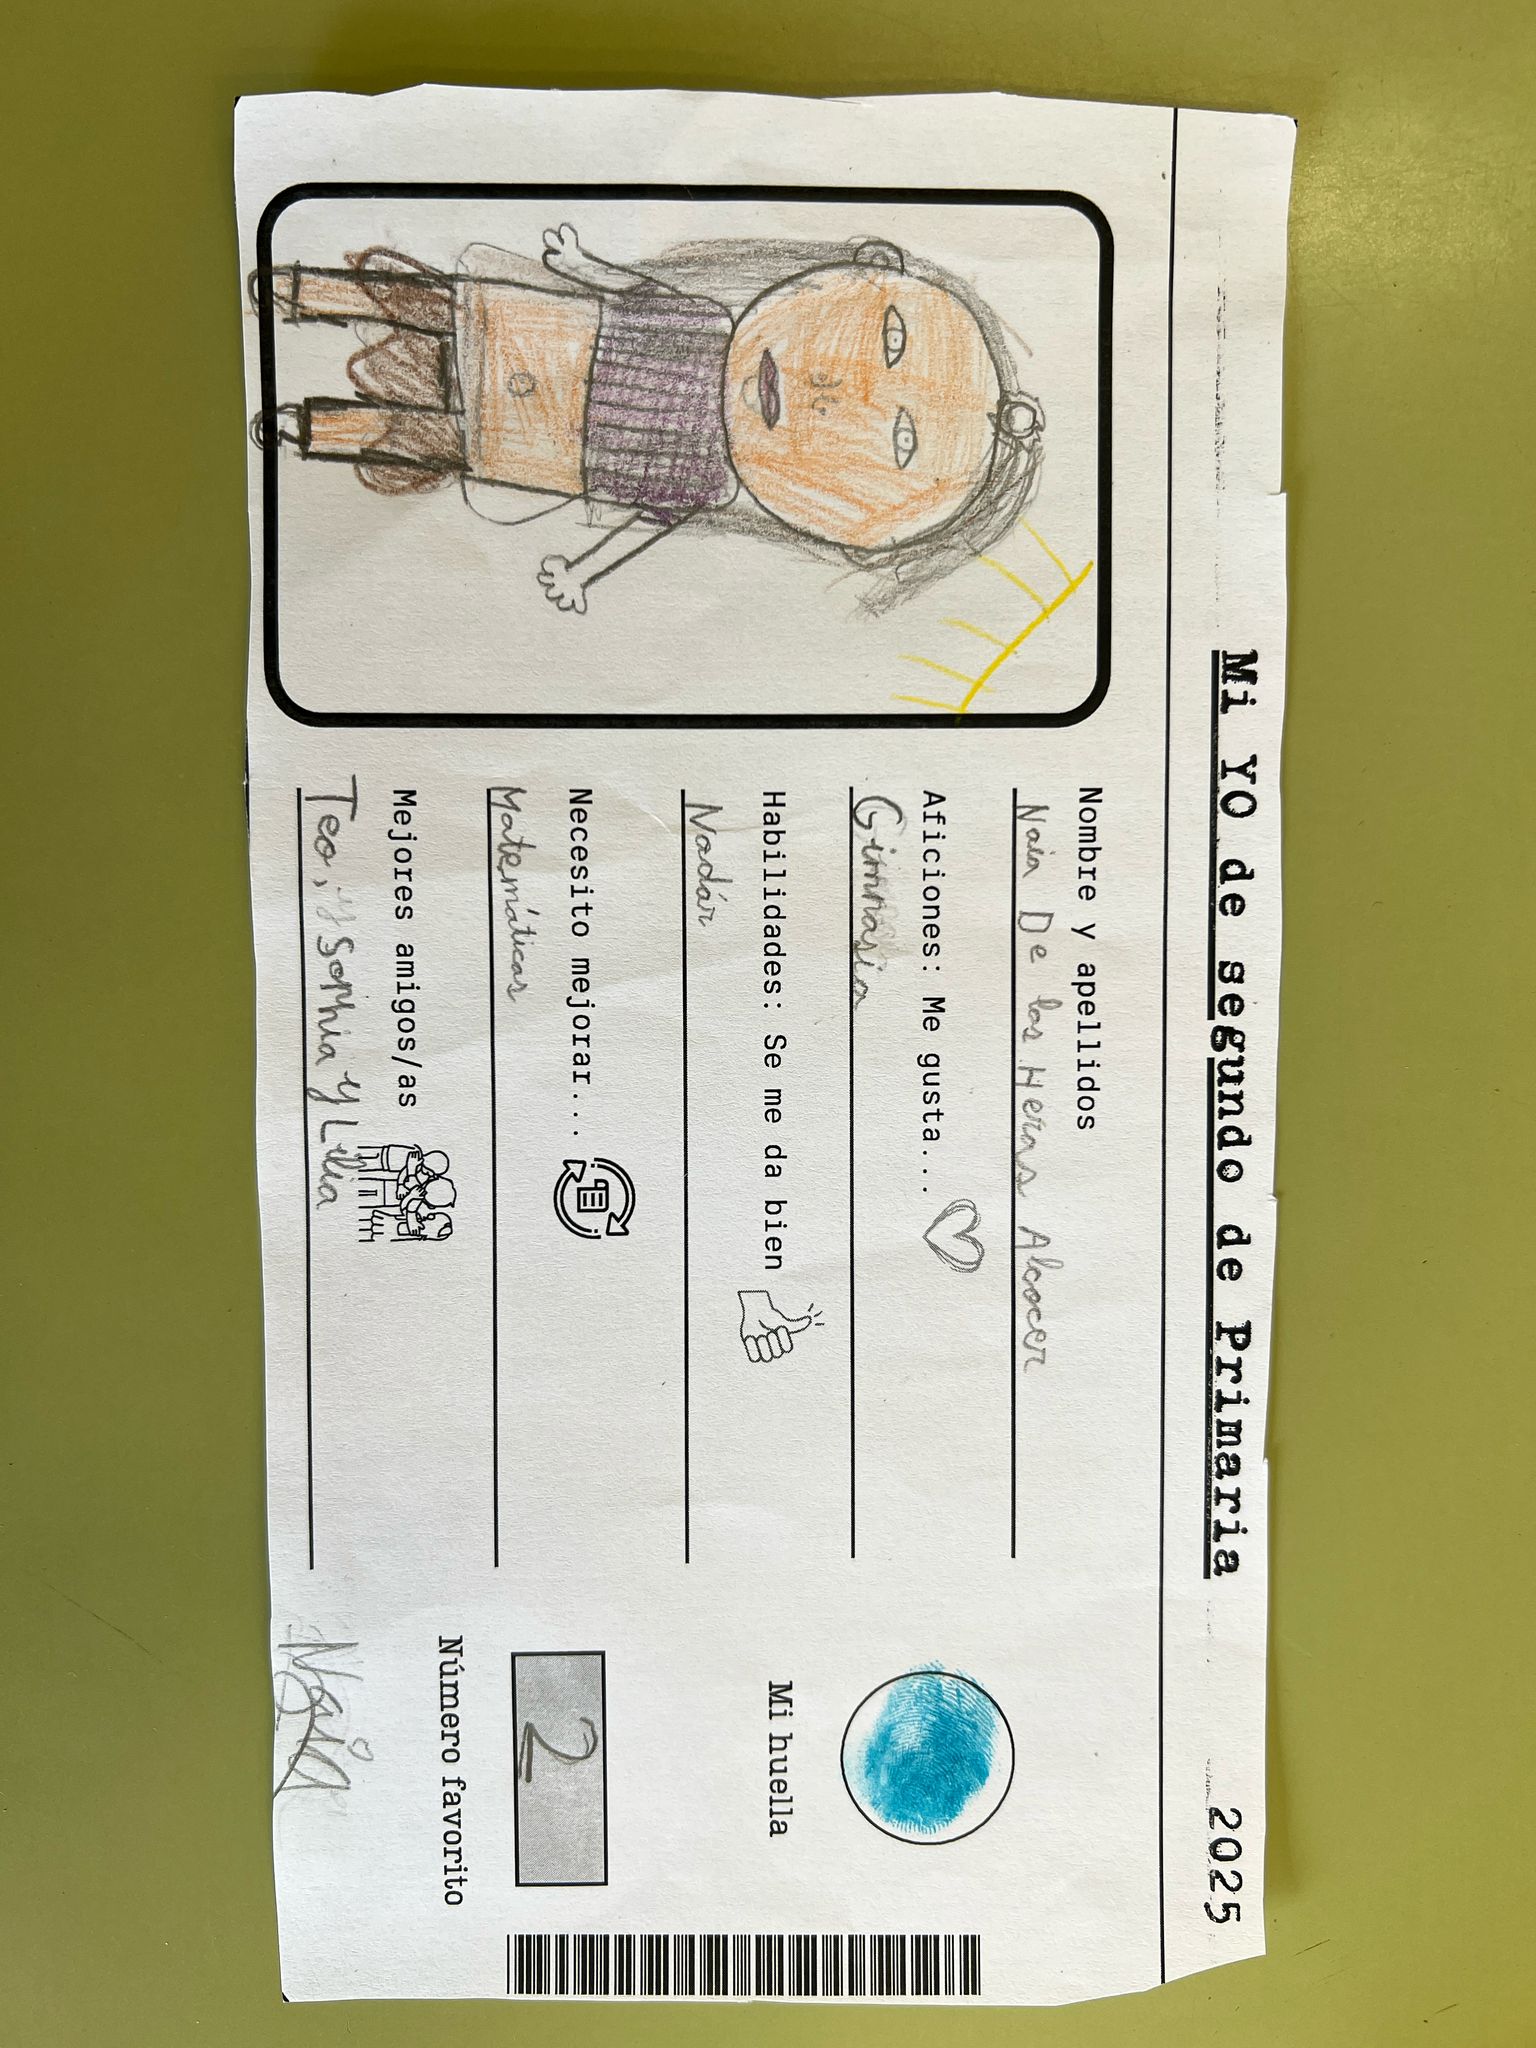 Mi YO de segundo de Primaria
2025
Nombre y apellidos
Naia De las Heras Alcocer
Aficiones: Me gusta...
Gimnasia
Habilidades: Se me da bien
Nadár
Necesito mejorar...
Matemáticas
Mejores amigos/as
Teo, y Sophia y Lilia
Mi huella
2
Número favorito
Naia